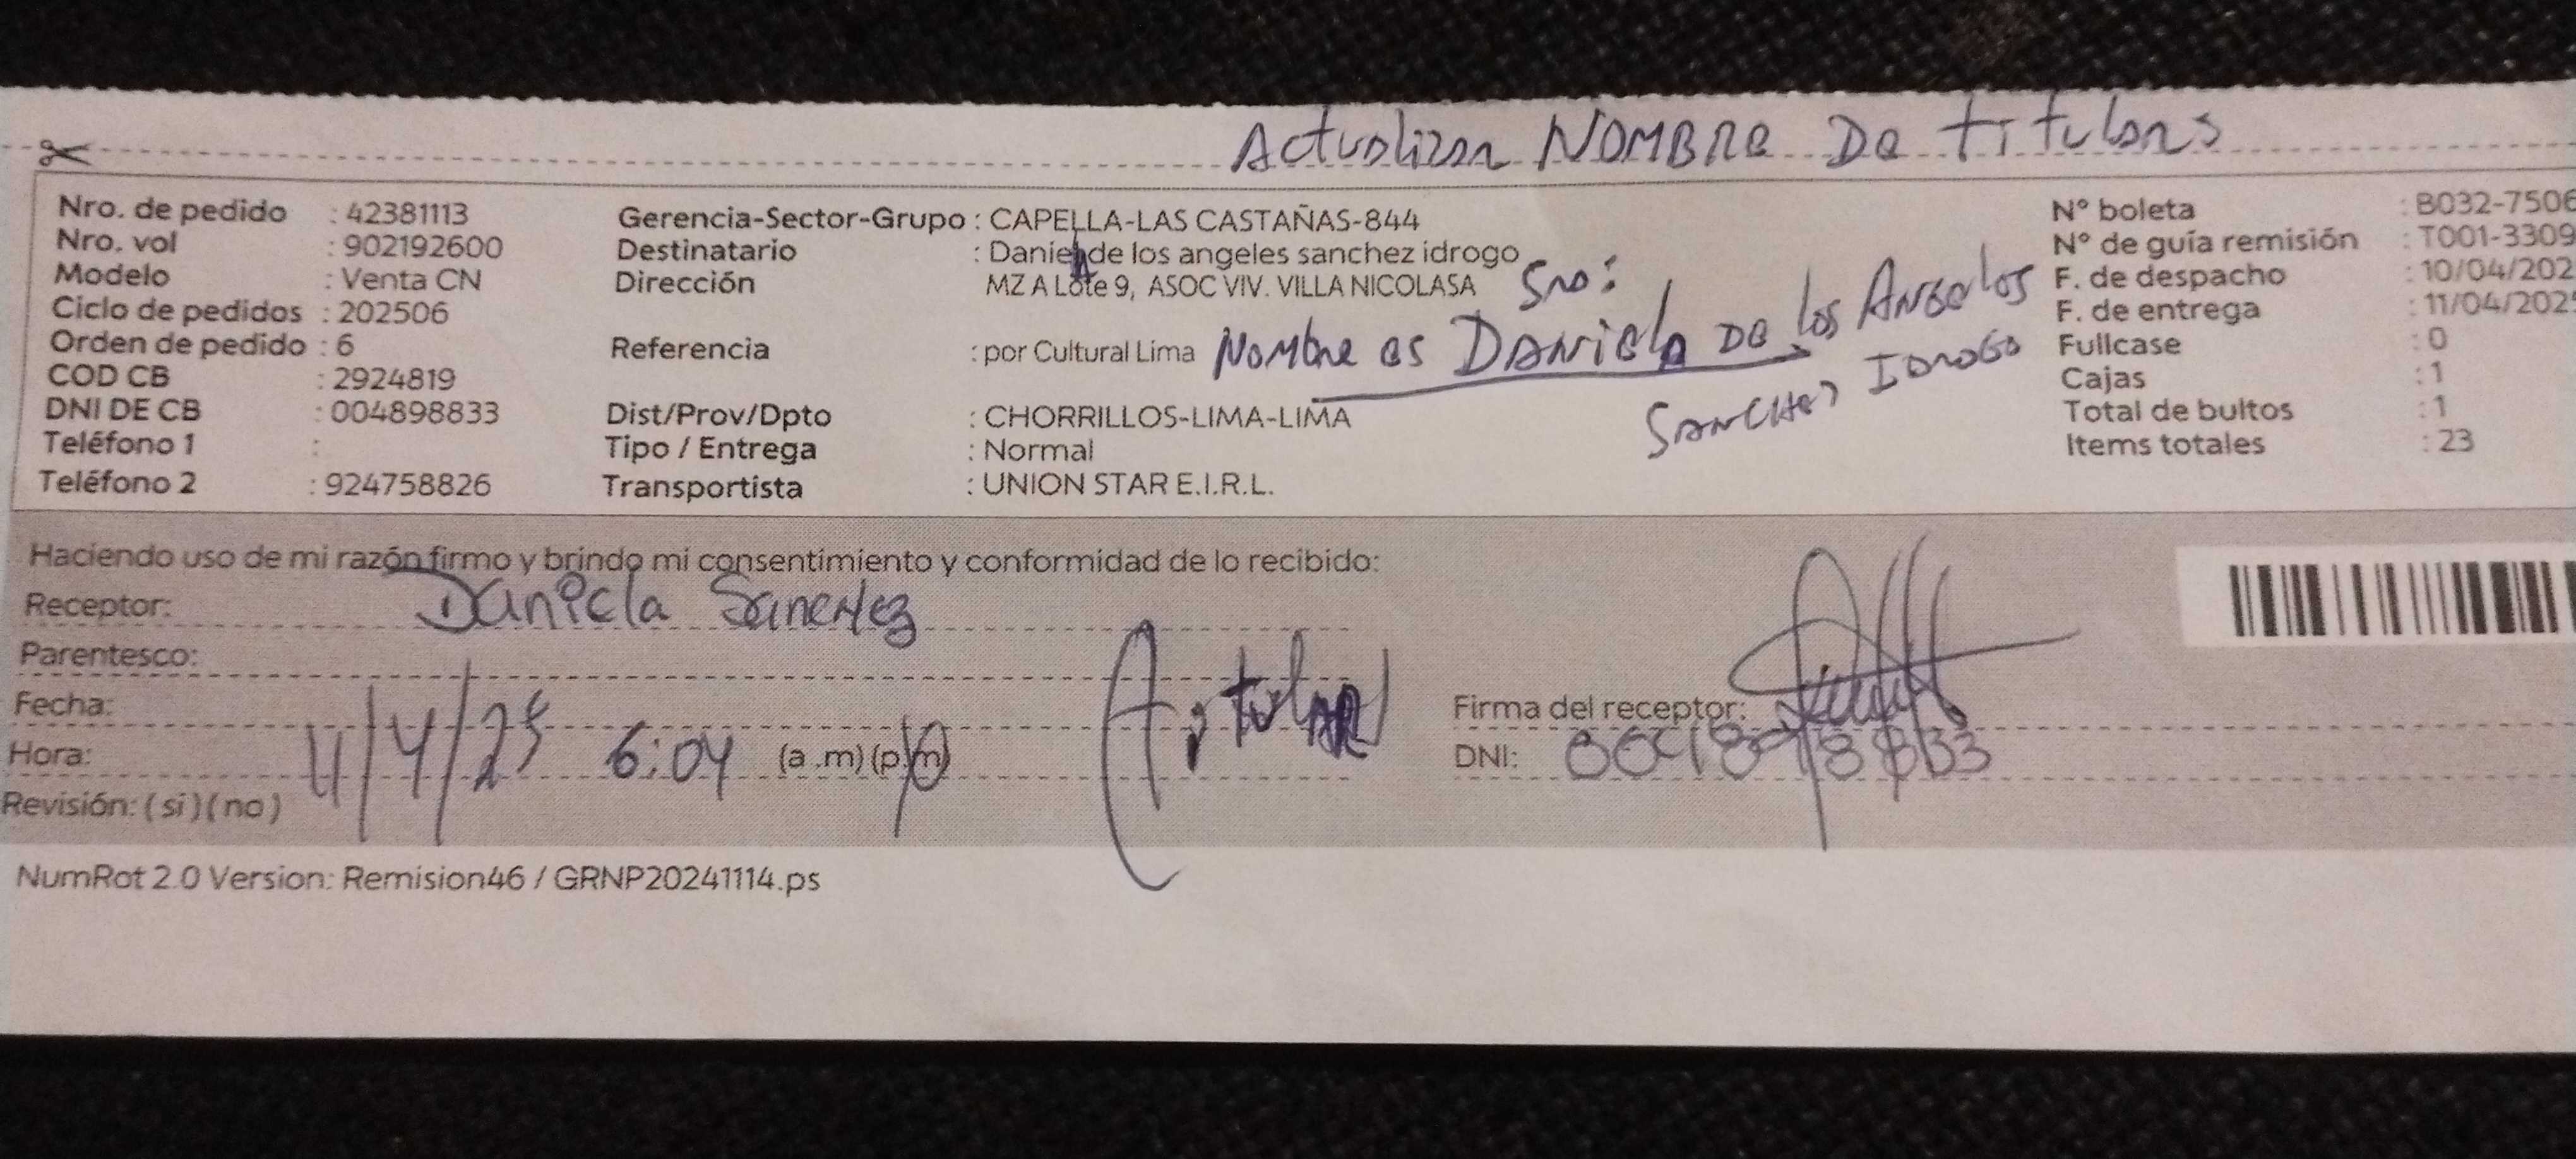 Actualizar NOMBRE De titular
Nro. de pedido : 42381113
Nro. vol : 902192600
Modelo : Venta CN
Ciclo de pedidos : 202506
Orden de pedido : 6
COD CB : 2924819
DNI DE CB : 004898833
Teléfono 1 :
Teléfono 2 : 924758826
Gerencia-Sector-Grupo : CAPELLA-LAS CASTAÑAS-844
Destinatario : Daniela de los angeles sanchez idrogo
Dirección MZ A Lote 9, ASOC VIV. VILLA NICOLASA
Referencia : por Cultural Lima
Dist/Prov/Dpto : CHORRILLOS-LIMA-LIMA
Tipo / Entrega : Normal
Transportista : UNION STAR E.I.R.L.
Nombre es DANIELA De los ANGeles
SANCHez IDROGO
Nº boleta : B032-7506
Nº de guía remisión : T001-3309
F. de despacho : 10/04/202
F. de entrega : 11/04/202
Fullcase : 0
Cajas : 1
Total de bultos : 1
Items totales : 23
Haciendo uso de mi razón firmo y brindo mi consentimiento y conformidad de lo recibido:
Receptor: Daniela Sanchez
Parentesco: titular
Fecha: 11/4/25
Hora: 6:04 (a .m) (p.m)
Revisión: ( si ) ( no )
Firma del receptor:
DNI: 004898833
NumRot 2.0 Version: Remision46 / GRNP20241114.ps